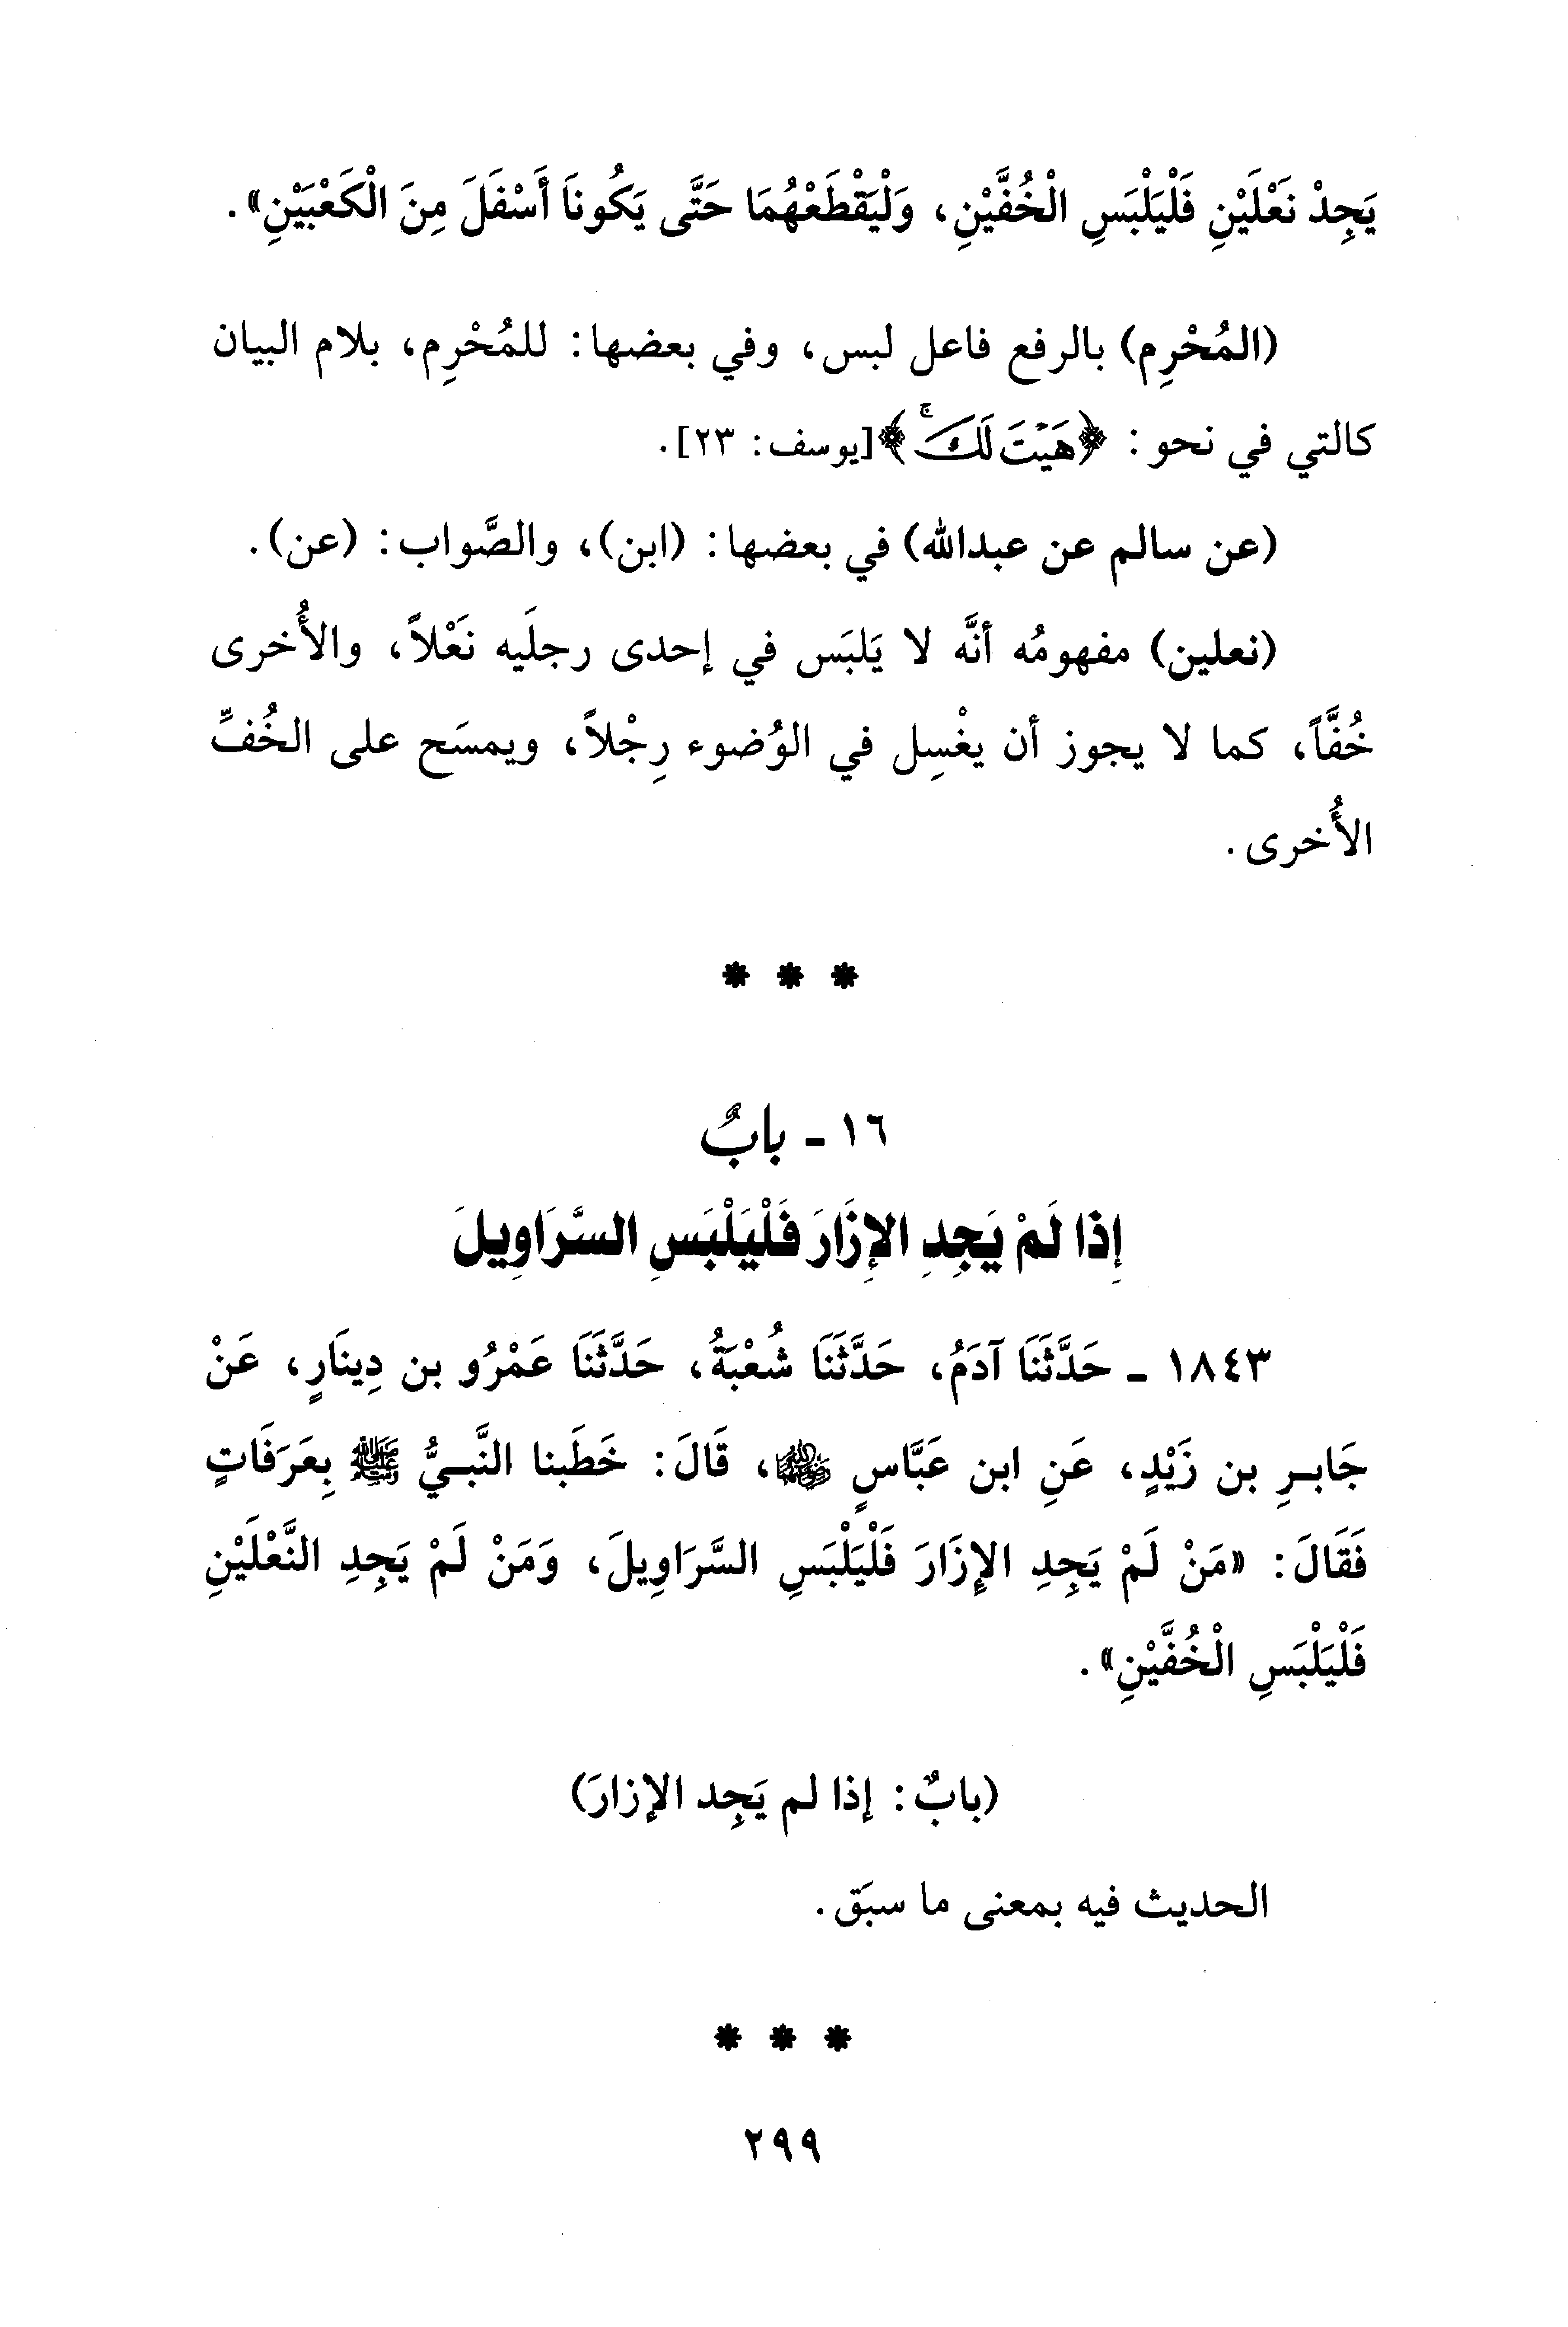 يَجِدْ نَعْلَيْنِ فَلْيَلْبَسِ الْخُفَّيْنِ، وَلْيَقْطَعْهُمَا حَتَّى يَكُونَا أَسْفَلَ مِنَ الْكَعْبَيْنِ».
(المُحْرِم) بالرفع فاعل لبس، وفي بعضها: للمُحْرِم، بلام البيان
كالتي في نحو: ﴿هَيْتَ لَكَ ۚ﴾[يوسف: ٢٣].
(عن سالم عن عبدالله) في بعضها: (ابن)، والصَّواب: (عن).
(نعلين) مفهومُه أنَّه لا يَلبَس في إحدى رجلَيه نَعْلاً، والأُخرى
خُفَّاً، كما لا يجوز أن يغْسِل في الوُضوء رِجْلاً، ويمسَح على الخُفِّ
الأُخرى.
* * *
١٦ - بابٌ
إِذا لَمْ يَجِدِ الإِزَارَ فَلْيَلْبَسِ السَّرَاوِيلَ
١٨٤٣ - حَدَّثَنَا آدَمُ، حَدَّثَنَا شُعْبَةُ، حَدَّثَنَا عَمْرُو بن دِينَارٍ، عَنْ
جَابِرِ بن زَيْدٍ، عَنِ ابن عَبَّاسٍ ﵄، قَالَ: خَطَبنا النَّبيُّ ﷺ بِعَرَفَاتٍ
فَقَالَ: «مَنْ لَمْ يَجِدِ الإِزَارَ فَلْيَلْبَسِ السَّرَاوِيلَ، وَمَنْ لَمْ يَجِدِ النَّعْلَيْنِ
فَلْيَلْبَسِ الْخُفَّيْنِ».
(بابٌ: إذا لم يَجِد الإزارَ)
الحديث فيه بمعنى ما سبَق.
* * *
٢٩٩